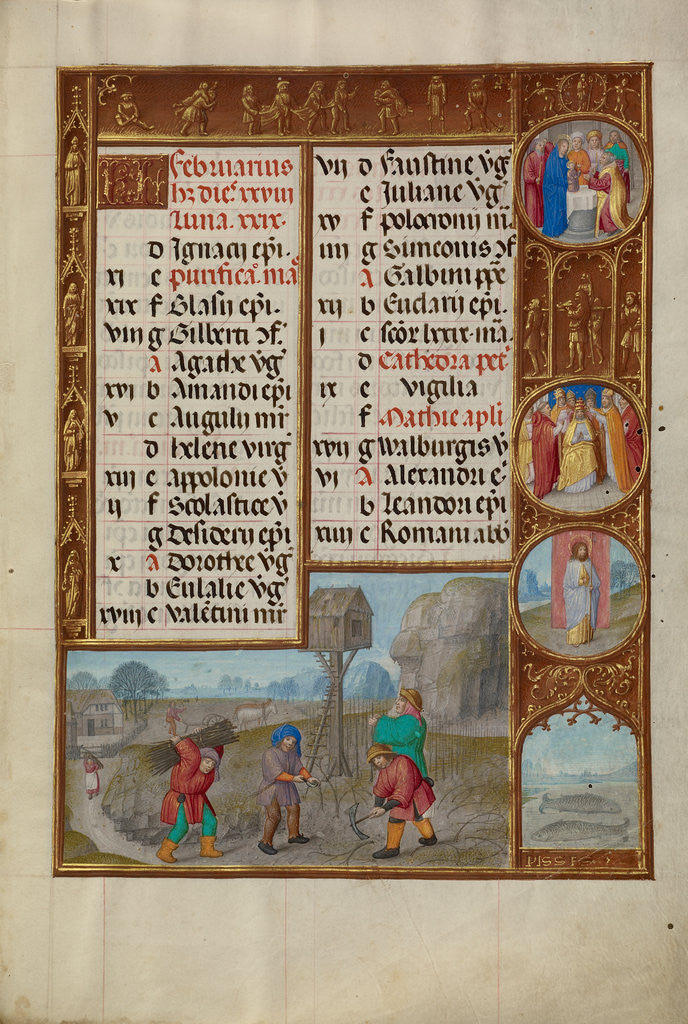 KL Februarius
hȝ dies xxviii
Luna. xxix.
d Ignacij ep̄i.
xi e Purifica. ma
xix f Blasij ep̄i.
viii g Gilberti ↄf.
A Agathe v̄g
xvi b Amandi ep̄i
v c Auguli mr̄
d helene virg
xiii e Appolonie v̄
ii f Scolastice v̄
g Desiderij ep̄i
x A Dorothee v̄g
b Eulalie v̄g
xviii c Valētini mr̄
vii d Faustine v̄g
e Juliane v̄g
xv f polocronij m̄
iiii g Simeonis ↄf
A Galbini
xii b Euclarij ep̄i.
i c lxxix. ma.
d Cathedra pet
ix e vigilia
f Mathie apl̄i
xvii g Walburgis v̄
vi A Alexandri e
b Leandori ep̄i
xiiii c Romani abb
PISSES